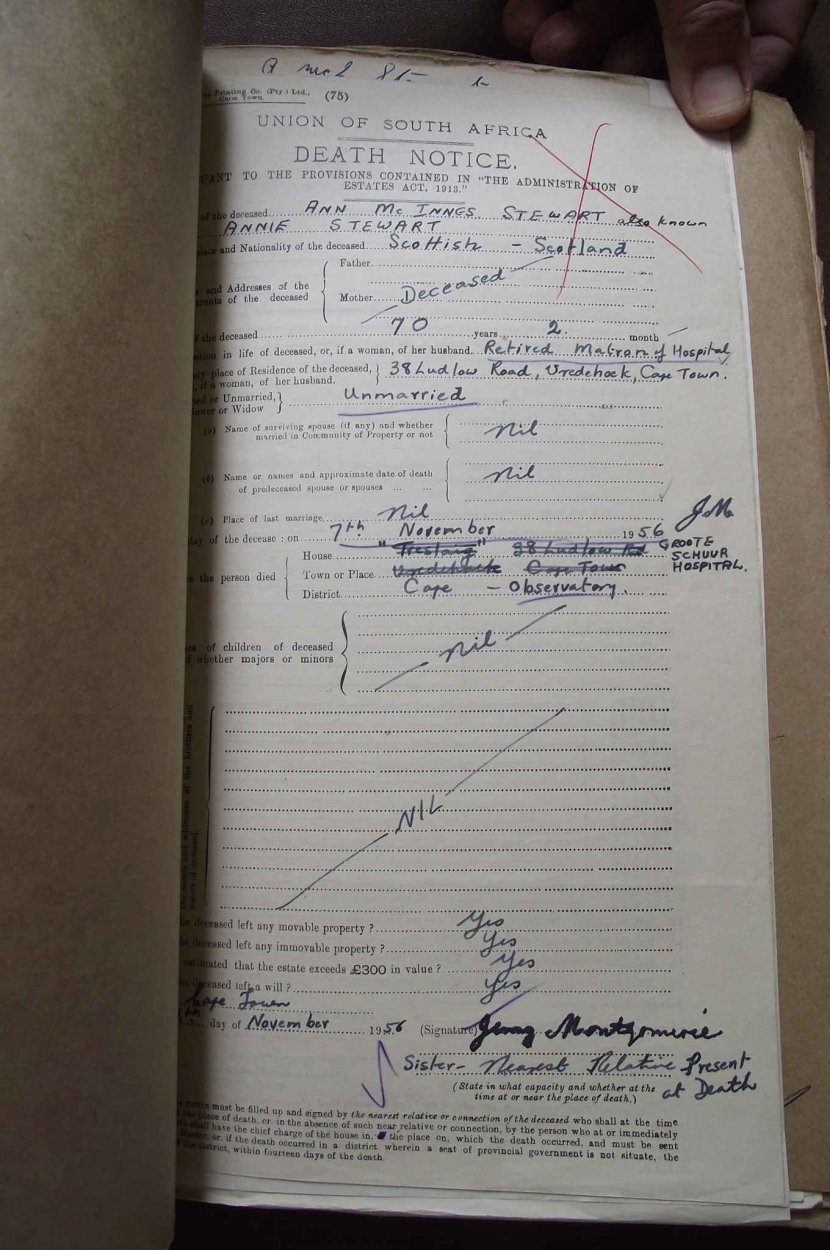 Printing Co. (Pty.) Ltd.,
Cape Town. (75)
UNION OF SOUTH AFRICA
DEATH NOTICE.
TO THE PROVISIONS CONTAINED IN "THE ADMINISTRATION OF
ESTATES ACT, 1913."
of the deceased ANN McINNES STEWART also known
ANNIE STEWART
and Nationality of the deceased Scottish - Scotland
Father
and Addresses of the
of the deceased
Mother Deceased
the deceased 70 years 2 month
in life of deceased, or, if a woman, of her husband. Retired Matron of Hospital
place of Residence of the deceased, 38 Ludlow Road, Vredehoek, Cape Town.
if a woman, of her husband.
or Unmarried, Unmarried
or Widow
(a) Name of surviving spouse (if any) and whether
married in Community of Property or not Nil
(b) Name or names and approximate date of death
of predeceased spouse or spouses ... ... Nil
(c) Place of last marriage Nil
day of the decease : on 7th November 1956 J.M.
House 38 Ludlow Rd GROOTE
SCHUUR
the person died Town or Place Vredehoek Cape Town HOSPITAL.
District Cape - Observatory.
of children of deceased
whether majors or minors Nil
NIL
deceased left any movable property ? Yes
deceased left any immovable property ? Yes
that the estate exceeds £300 in value ? Yes
left a will ? Yes
Cape Town
day of November 1956 (Signature) Jenny Montgomerie
Sister - Nearest Relative Present
(State in what capacity and whether at the at Death
time at or near the place of death.)
notice must be filled up and signed by the nearest relative or connection of the deceased who shall at the time
place of death, or in the absence of such near relative or connection, by the person who at or immediately
shall have the chief charge of the house in, the place on, which the death occurred, and must be sent
Master, or, if the death occurred in a district wherein a seat of provincial government is not situate, the
the district, within fourteen days of the death.